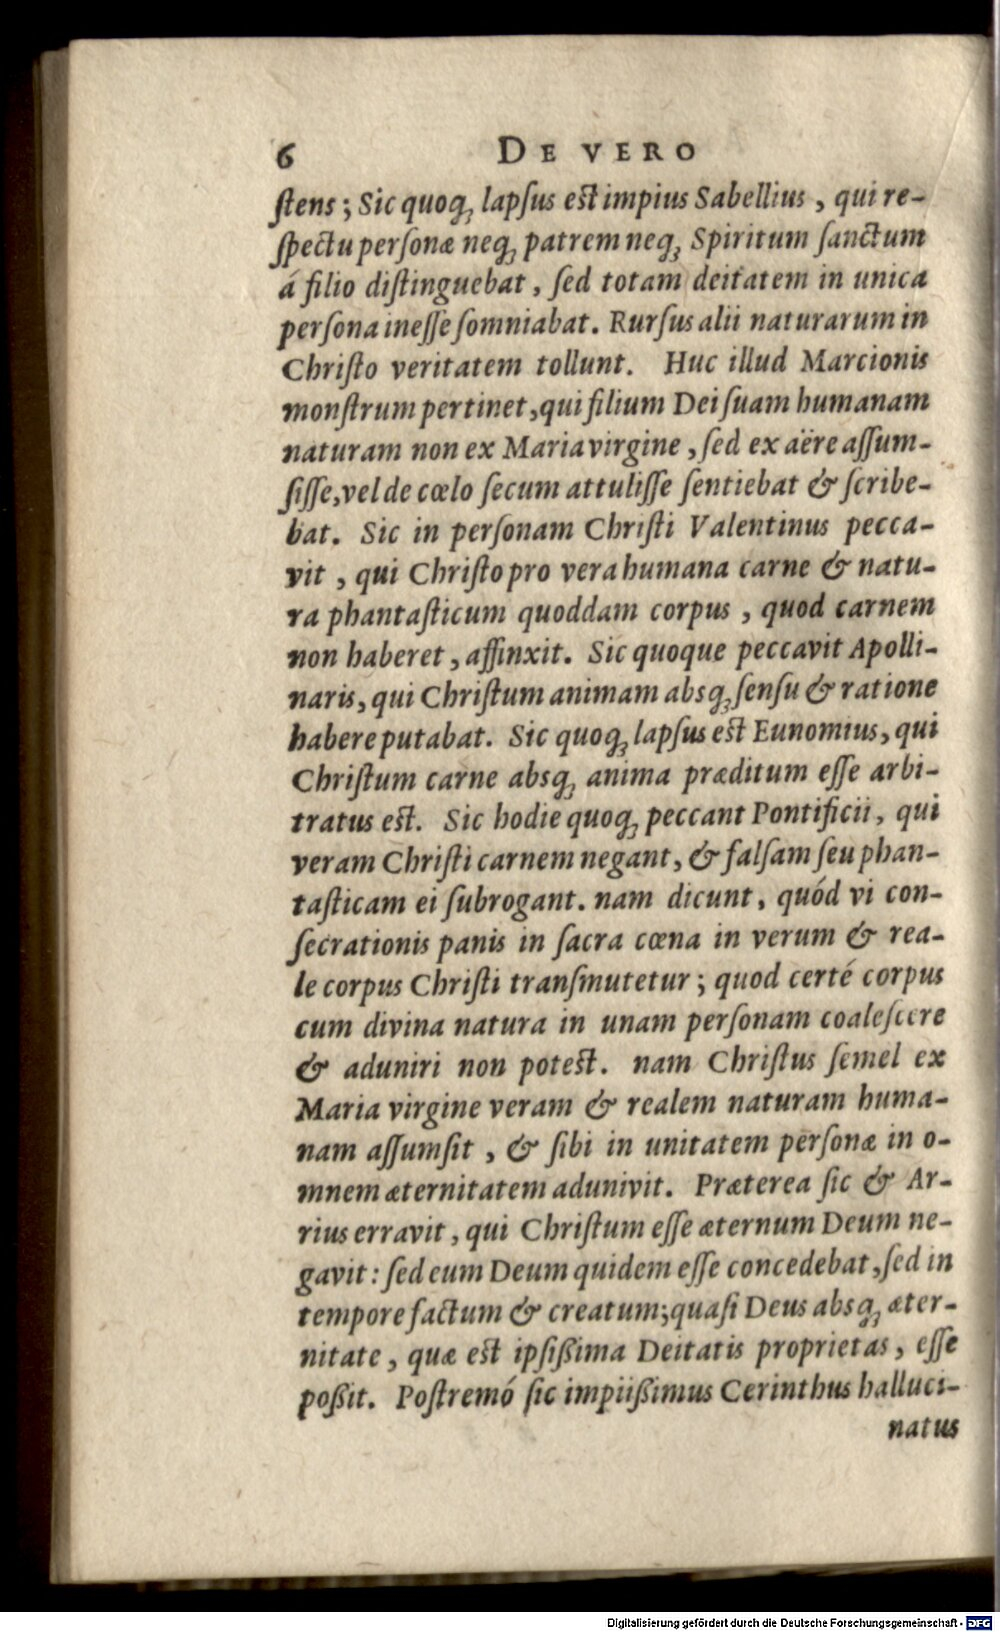 6 DE VERO
ſtens; Sic quoqꝫ lapſus eſt impius Sabellius, qui re-
ſpectu perſonæ neqꝫ patrem neqꝫ Spiritum ſanctum
á filio diſtinguebat, ſed totam deitatem in unica
perſona ineſſe ſomniabat. Rurſus alii naturarum in
Chriſto veritatem tollunt. Huc illud Marcionis
monſtrum pertinet, qui filium Dei ſuam humanam
naturam non ex Maria virgine, ſed ex aëre aſſum-
ſiſſe, vel de cœlo ſecum attuliſſe ſentiebat & ſcribe-
bat. Sic in perſonam Chriſti Valentinus pecca-
vit, qui Chriſto pro vera humana carne & natu-
ra phantaſticum quoddam corpus, quod carnem
non haberet, affinxit. Sic quoque peccavit Apolli-
naris, qui Chriſtum animam absqꝫ ſenſu & ratione
habere putabat. Sic quoqꝫ lapſus eſt Eunomius, qui
Chriſtum carne absqꝫ anima præditum eſſe arbi-
tratus eſt. Sic hodie quoqꝫ peccant Pontificii, qui
veram Chriſti carnem negant, & falſam ſeu phan-
taſticam ei ſubrogant. nam dicunt, quód vi con-
ſecrationis panis in ſacra cœna in verum & rea-
le corpus Chriſti tranſmutetur; quod certé corpus
cum divina natura in unam perſonam coaleſcere
& aduniri non poteſt. nam Chriſtus ſemel ex
Maria virgine veram & realem naturam huma-
nam aſſumſit, & ſibi in unitatem perſonæ in o-
mnem æternitatem adunivit. Præterea ſic & Ar-
rius erravit, qui Chriſtum eſſe æternum Deum ne-
gavit: ſed eum Deum quidem eſſe concedebat, ſed in
tempore factum & creatum; quaſi Deus absqꝫ æter-
nitate, quæ eſt ipſißima Deitatis proprietas, eſſe
poßit. Poſtremó ſic impiißimus Cerinthus halluci-
natus
Digitalisierung gefördert durch die Deutsche Forschungsgemeinschaft - DFG